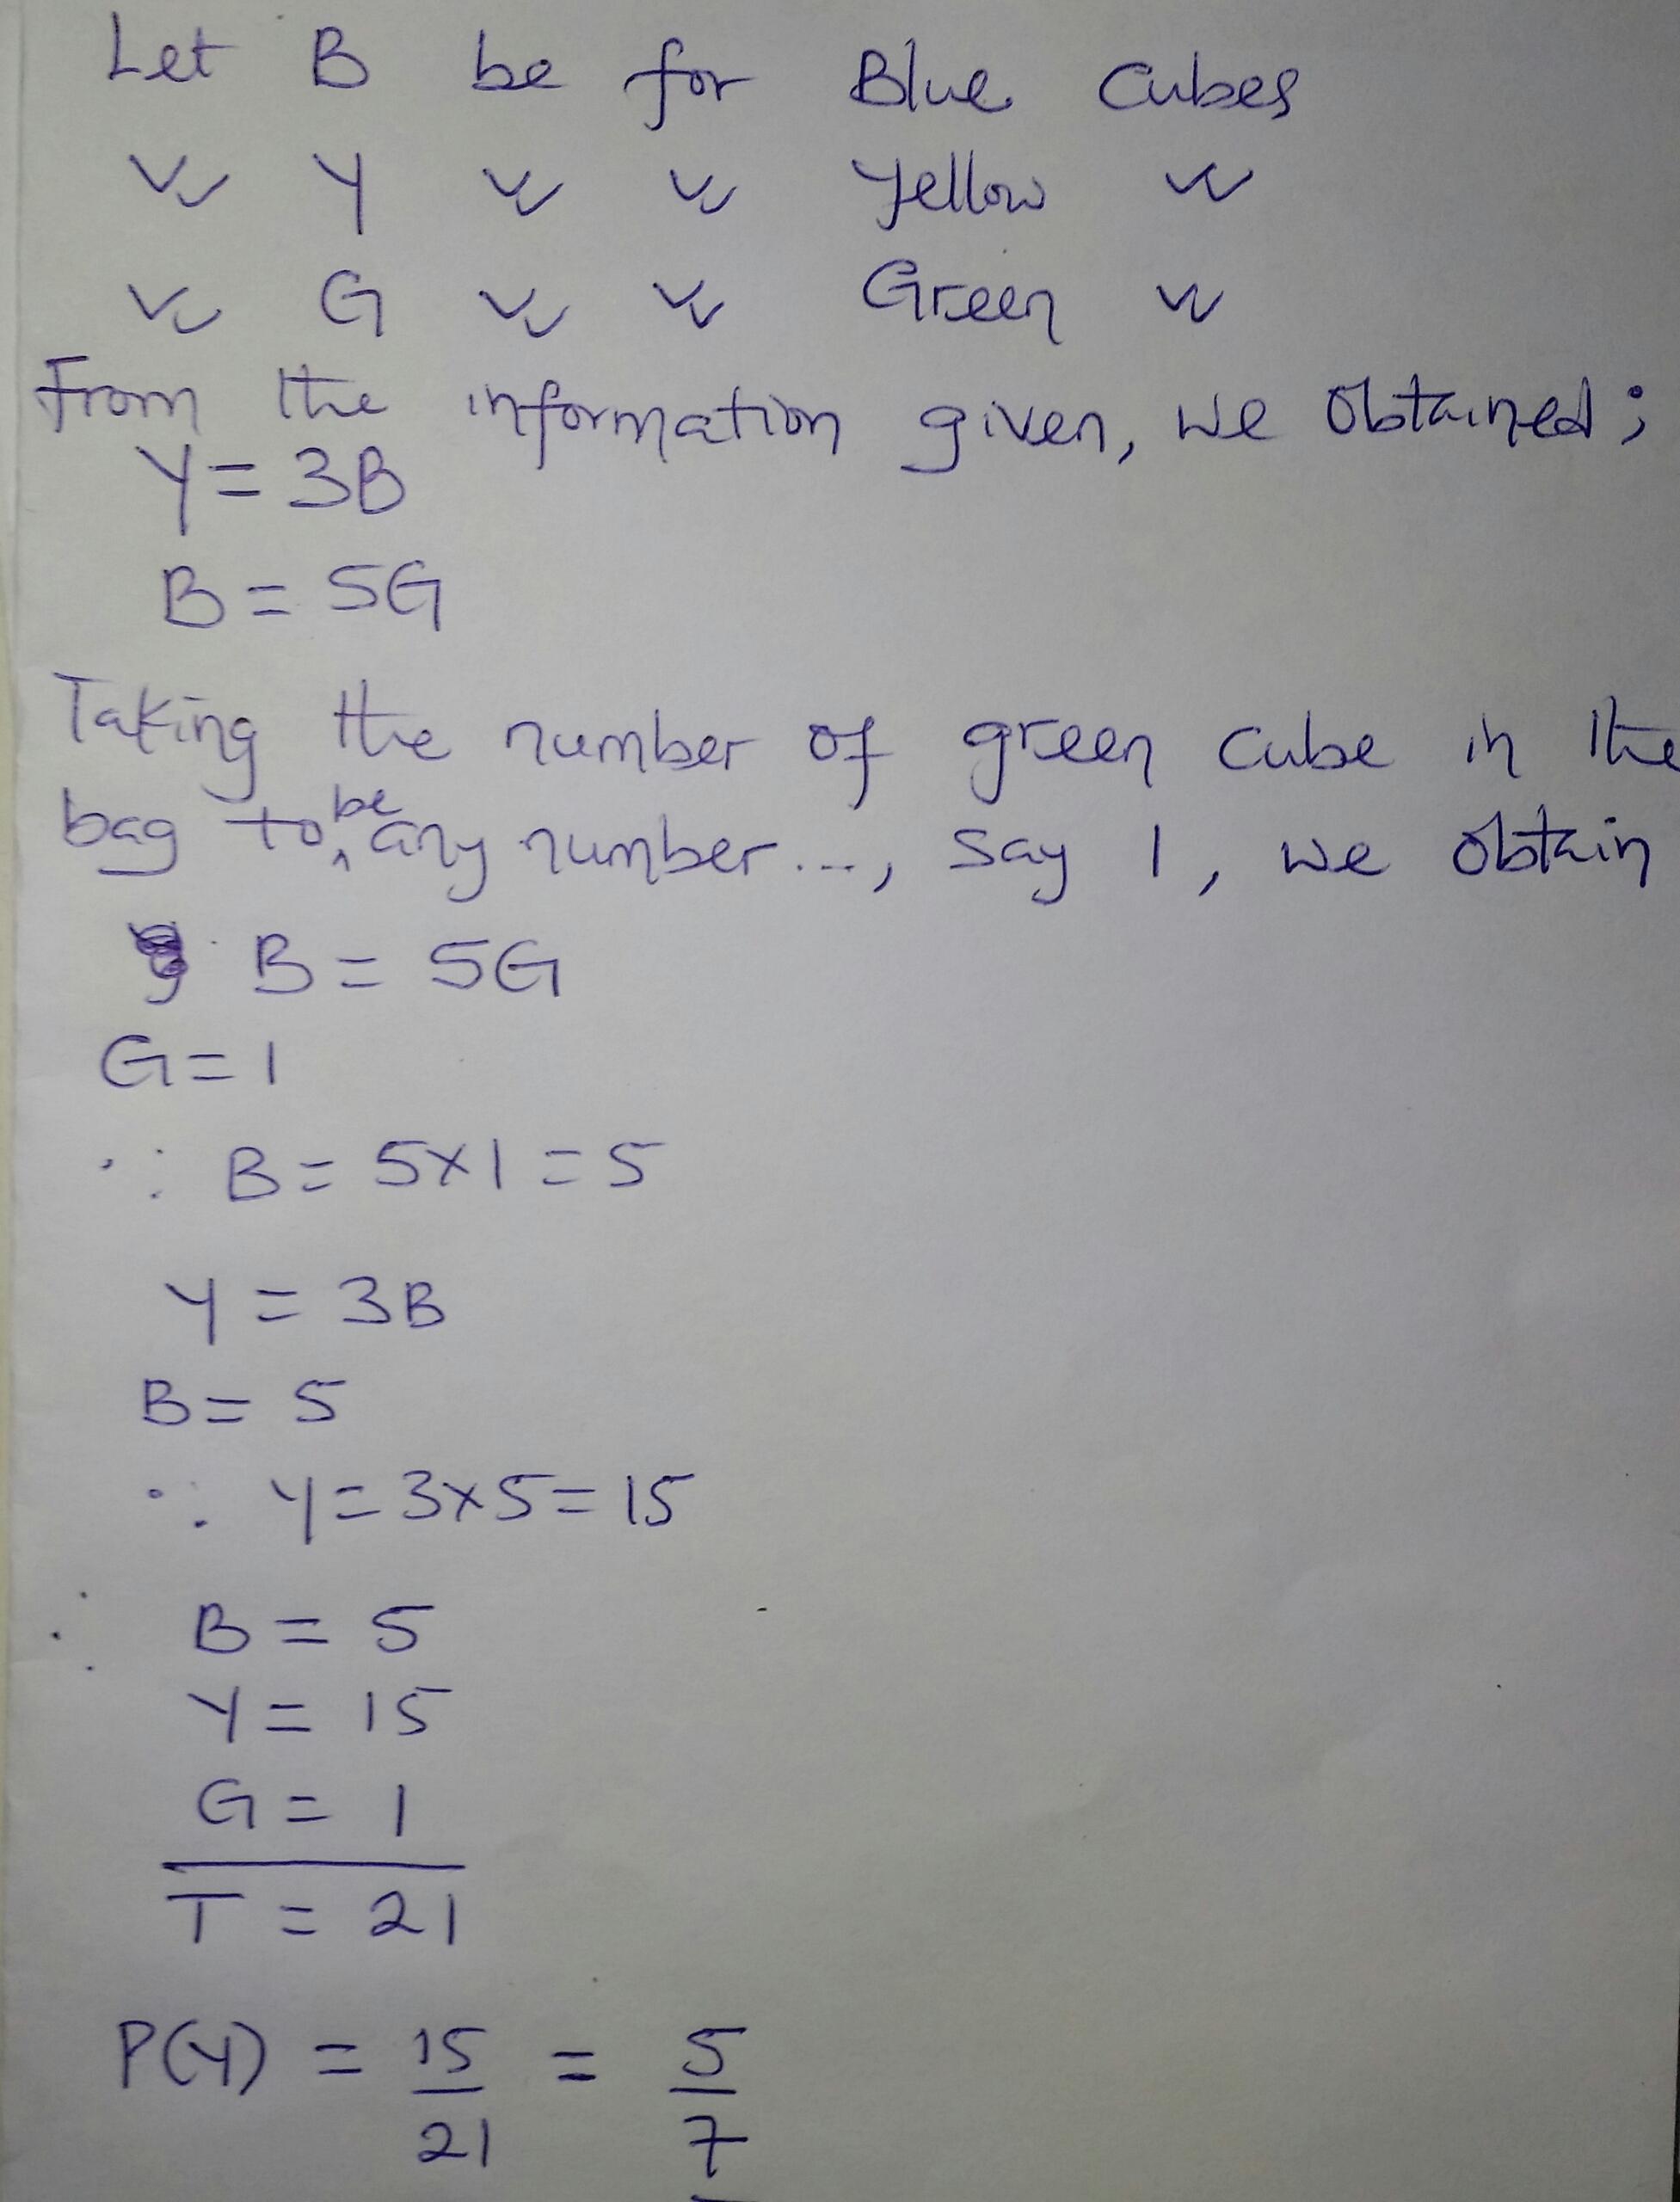 Let B be for Blue Cubes
〃 Y 〃 〃 Yellow 〃
〃 G 〃 〃 Green 〃
From the information given, we obtained;
Y = 3B
B = 5G
Taking the number of green cube in the
bag to be any number..., say 1, we obtain
B = 5G
G = 1
∴ B = 5×1 = 5
Y = 3B
B = 5
∴ Y = 3×5 = 15
∴ B = 5
Y = 15
G = 1
T = 21
P(Y) = 15/21 = 5/7